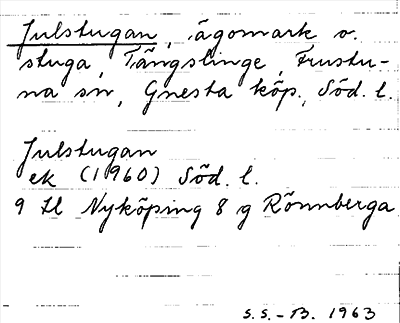 Julstugan, ägomark o.
stuga, Tängslinge, Frustu-
na sn, Gnesta köp., Söd. l.
Julstugan
ek (1960) Söd. l.
9 H Nyköping 8 g Rönnberga
S.S.-B. 1963